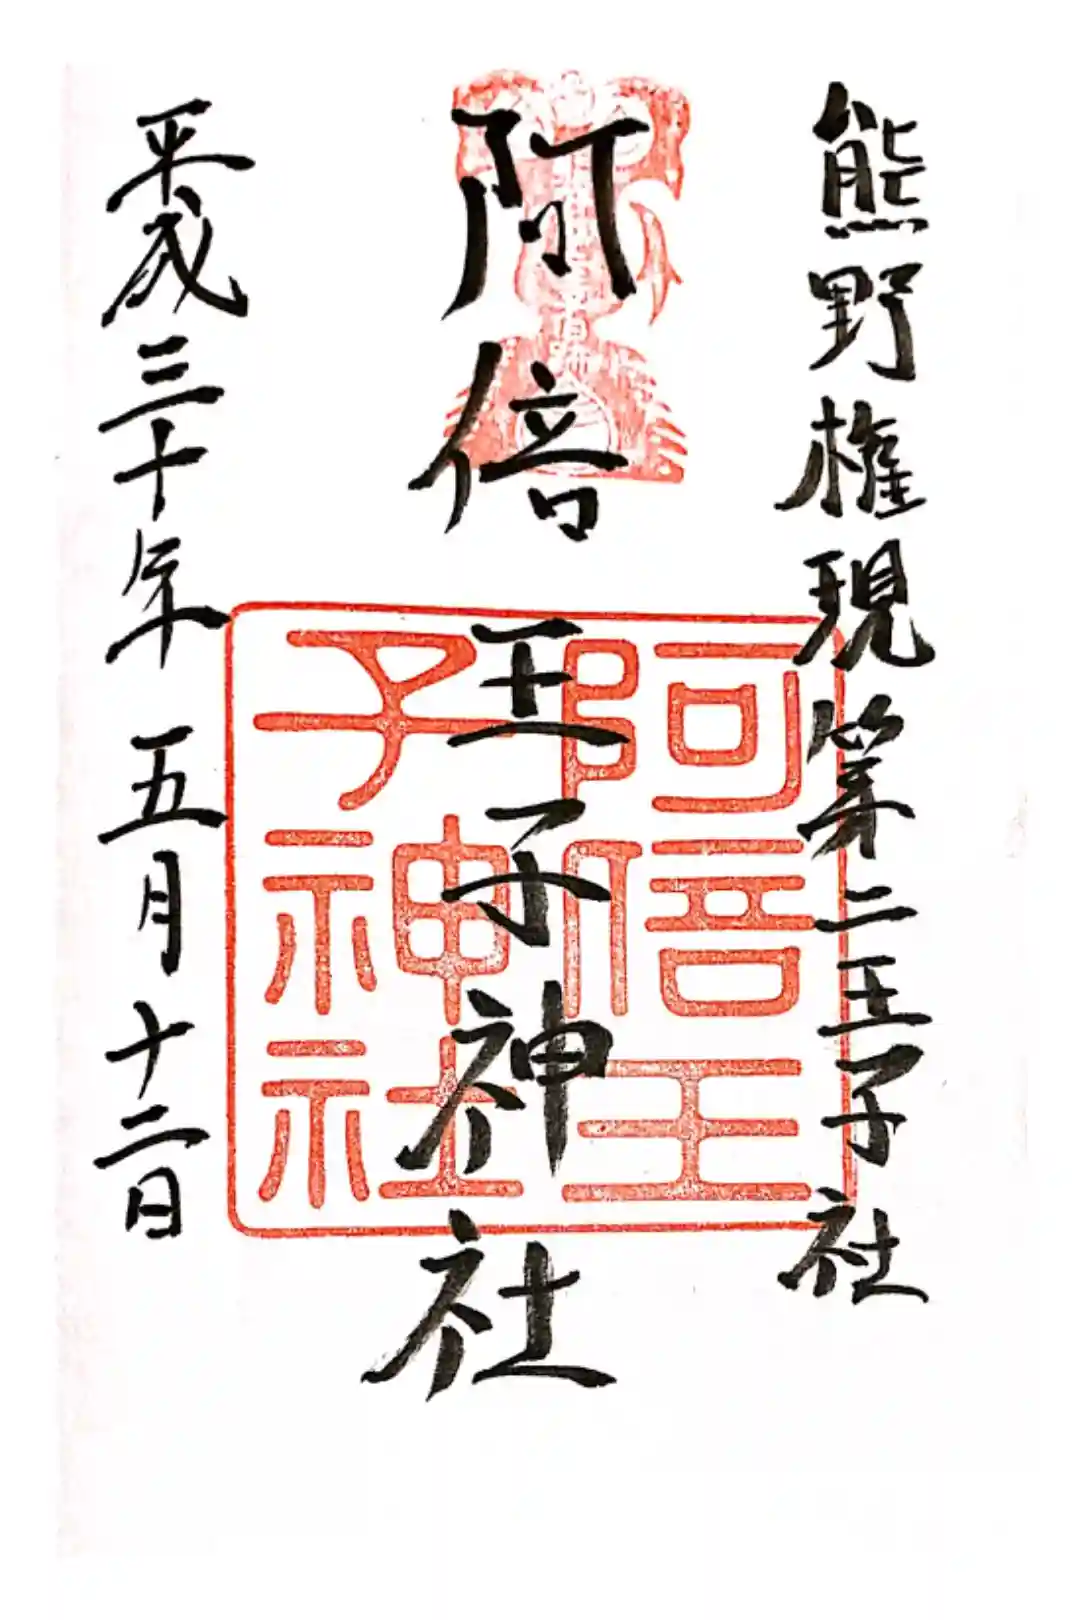 熊野権現第二王子社
阿倍王子神社
阿倍王子神社
平成三十年五月十二日